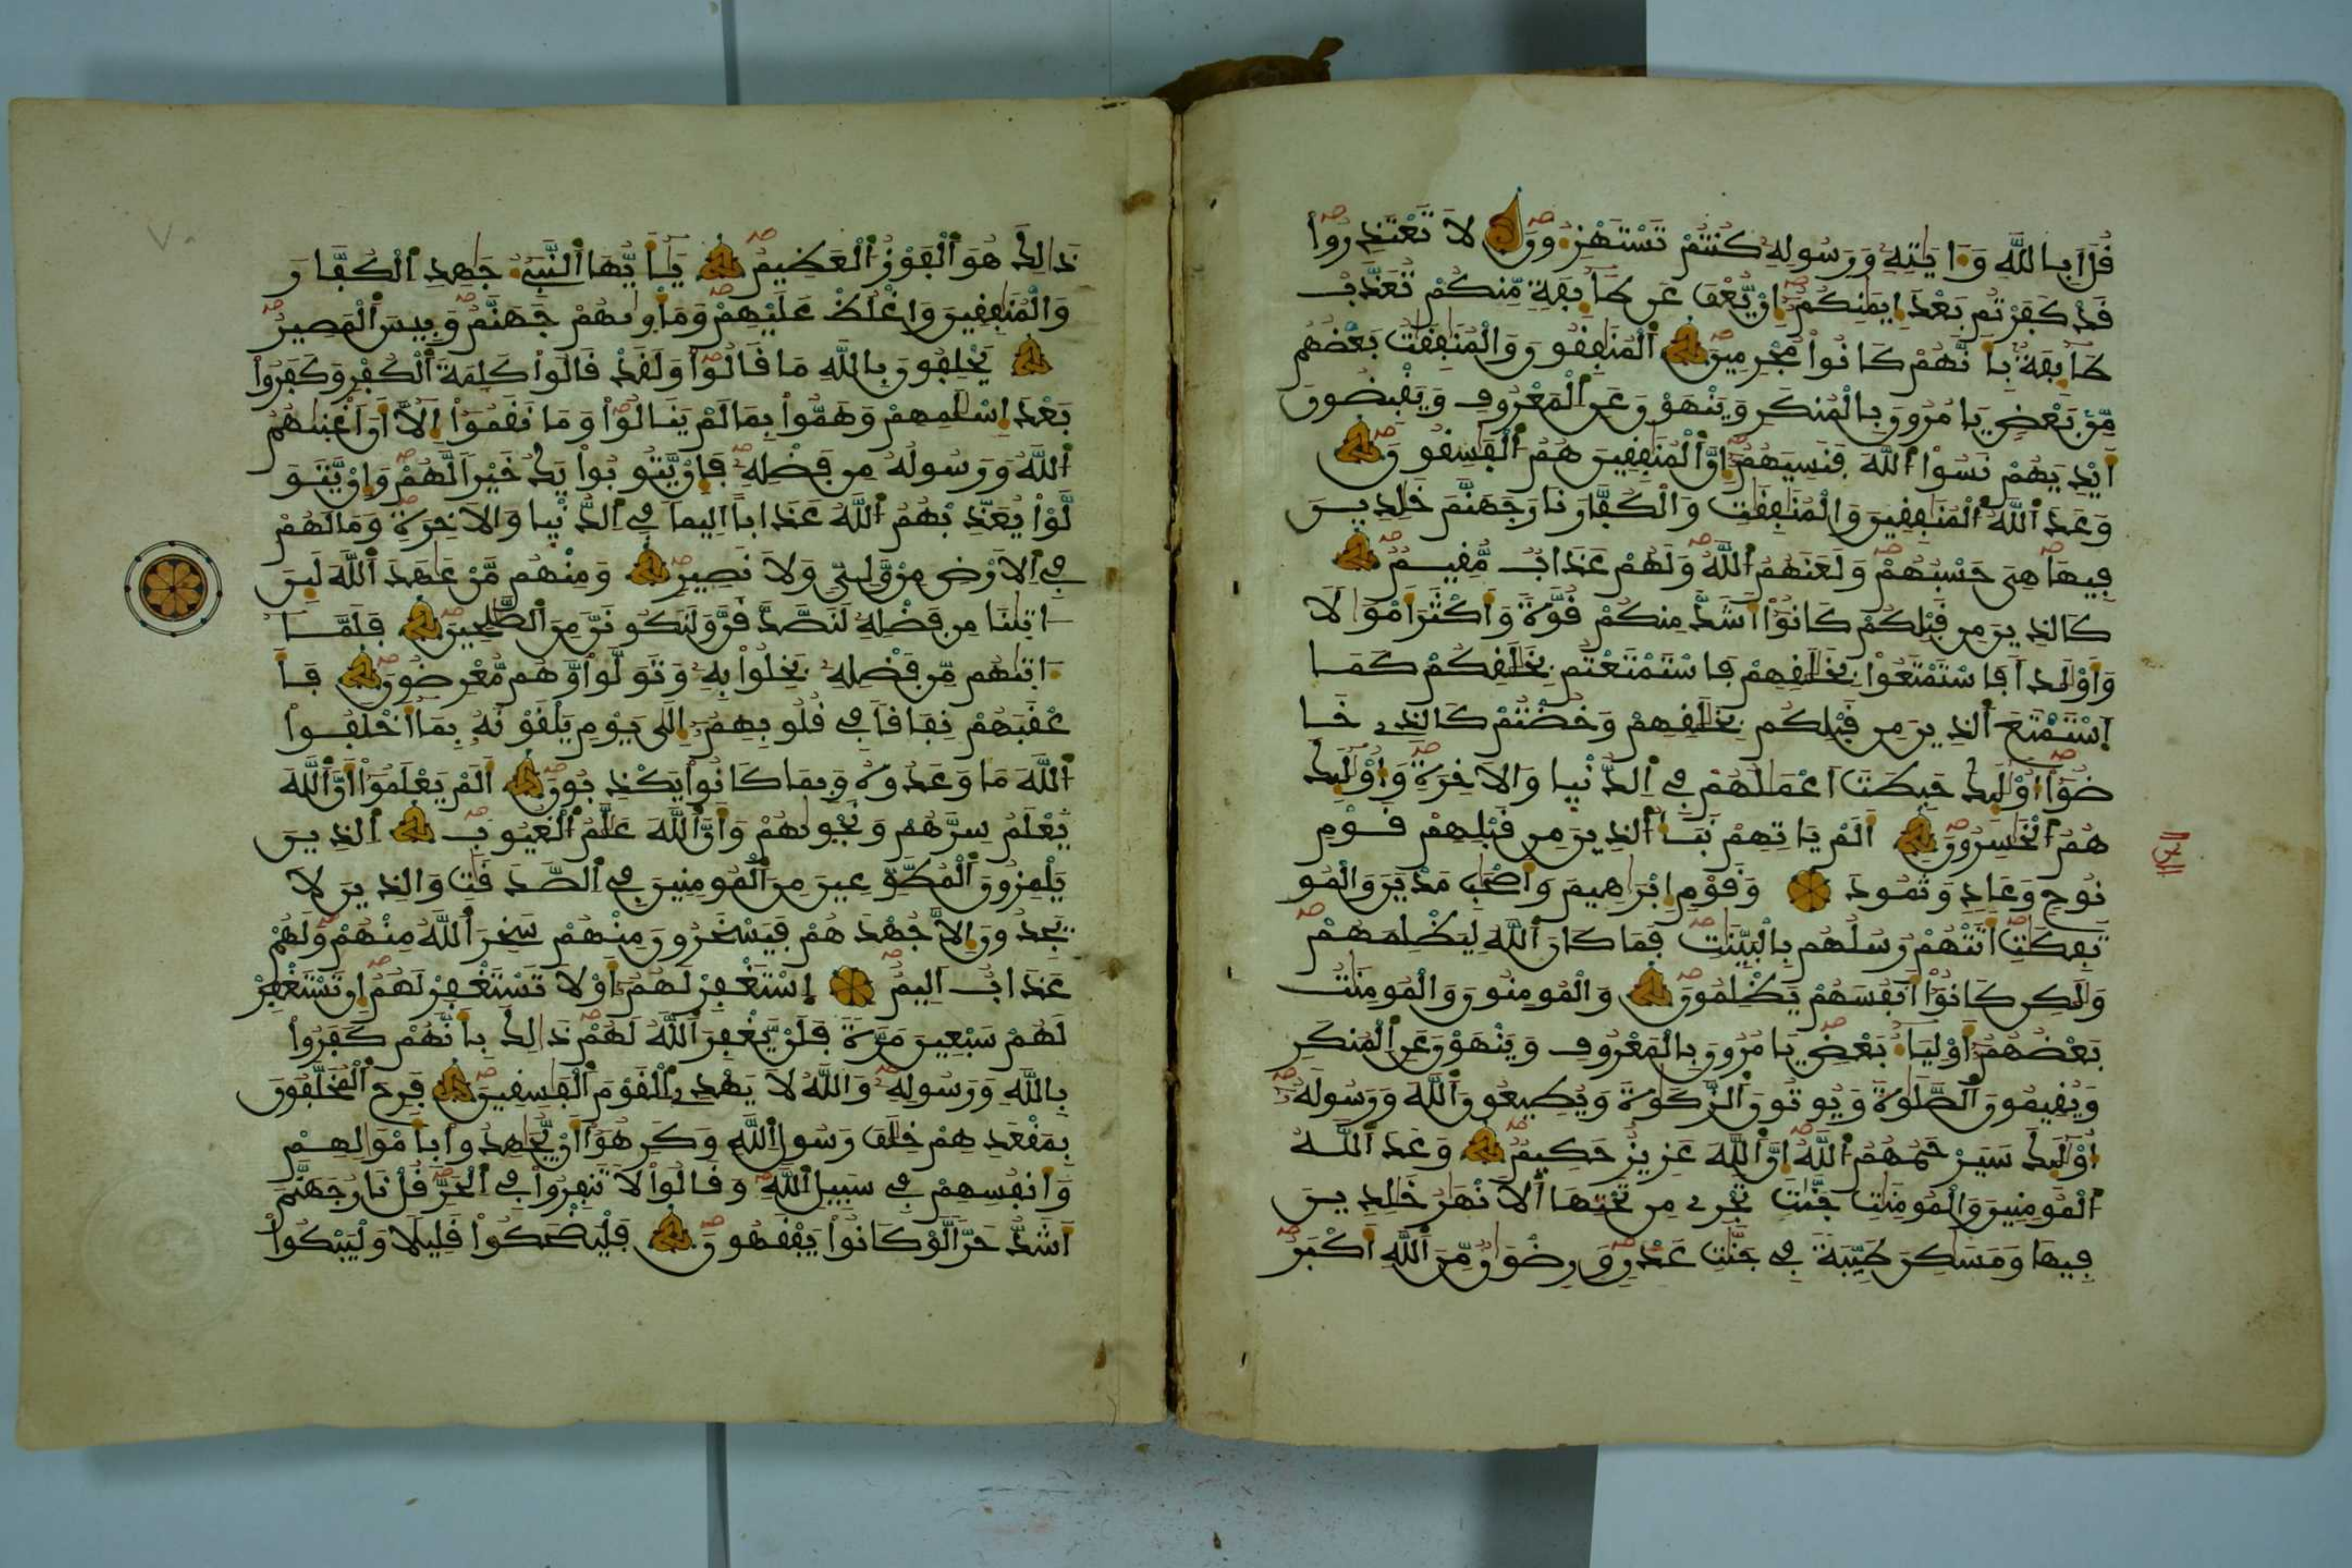 قُلَ اَبِاللَّهِ وَءَايَٰتِهِۦ وَرَسُولِهِۦ كُنتُمْ تَسْتَهْزِءُونَ لَا تَعْتَذِرُواْ
قَدْ كَفَرْتُم بَعْدَ إِيمَٰنِكُمُۥٓ إِنْ يُّعْفَ عَن طَآئِفَةٖ مِّنكُمْ تُعَذَّبْ
طَآئِفَةُۢ بِأَنَّهُمْ كَانُواْ مُجْرِمِينَ اَ۬لْمُنَٰفِقُونَ وَالْمُنَٰفِقَٰتُ بَعْضُهُم
مِّنۢ بَعْضٖ يَامُرُونَ بِالْمُنكَرِ وَيَنْهَوْنَ عَنِ اِ۬لْمَعْرُوفِ وَيَقْبِضُونَ
أَيْدِيَهُمْ نَسُواْ اُ۬للَّهَ فَنَسِيَهُمُۥٓ إِنَّ اَ۬لْمُنَٰفِقِينَ هُمُ اُ۬لْفَٰسِقُونَ
وَعَدَ اَ۬للَّهُ اُ۬لْمُنَٰفِقِينَ وَالْمُنَٰفِقَٰتِ وَالْكُفَّارَ نَارَ جَهَنَّمَ خَٰلِدِينَ
فِيهَا هِيَ حَسْبُهُمْ وَلَعَنَهُمُ اُ۬للَّهُ وَلَهُمْ عَذَابٞ مُّقِيمٞ
كَالذِينَ مِن قَبْلِكُمْ كَانُوٓاْ أَشَدَّ مِنكُمْ قُوَّةٗ وَأَكْثَرَ أَمْوَٰلاٗ
وَأَوْلَٰداٗ فَاسْتَمْتَعُواْ بِخَلَٰقِهِمْ فَاسْتَمْتَعْتُم بِخَلَٰقِكُمْ كَمَا
اَ۪سْتَمْتَعَ اَ۬لذِينَ مِن قَبْلِكُم بِخَلَٰقِهِمْ وَخُضْتُمْ كَالذِے خَا
ضُوٓاْ أُوْلَٰٓئِكَ حَبِطَتَ اَعْمَٰلُهُمْ فِے اِ۬لدُّنْيَا وَالَاخِرَةِ وَأُوْلَٰٓئِكَ
هُمُ اُ۬لْخَٰسِرُونَ أَلَمْ يَاتِهِمْ نَبَأُ اُ۬لذِينَ مِن قَبْلِهِمْ قَوْمِ
نُوحٖ وَعَادٖ وَثَمُودَ وَقَوْمِ إِبْرَٰهِيمَ وَأَصْحَٰبِ مَدْيَنَ وَالْمُو
تَفِكَٰتِ أَتَتْهُمْ رُسُلُهُم بِالْبَيِّنَٰتِ فَمَا كَانَ اَ۬للَّهُ لِيَظْلِمَهُمْ
وَلَٰكِن كَانُوٓاْ أَنفُسَهُمْ يَظْلِمُونَ وَالْمُومِنُونَ وَالْمُومِنَٰتُ
بَعْضُهُمُۥٓ أَوْلِيَآءُ بَعْضٖ يَامُرُونَ بِالْمَعْرُوفِ وَيَنْهَوْنَ عَنِ اِ۬لْمُنكَرِ
وَيُقِيمُونَ اَ۬لصَّلَوٰةَ وَيُوتُونَ اَ۬لزَّكَوٰةَ وَيُطِيعُونَ اَ۬للَّهَ وَرَسُولَهُۥٓ
أُوْلَٰٓئِكَ سَيَرْحَمُهُمُ اُ۬للَّهُ إِنَّ اَ۬للَّهَ عَزِيزٌ حَكِيمٞ وَعَدَ اَ۬للَّهُ
اُ۬لْمُومِنِينَ وَالْمُومِنَٰتِ جَنَّٰتٖ تَجْرِے مِن تَحْتِهَا اَ۬لَانْهَٰرُ خَٰلِدِينَ
فِيهَا وَمَسَٰكِنَ طَيِّبَةٗ فِے جَنَّٰتِ عَدْنٖ وَرِضْوَٰنٞ مِّنَ اَ۬للَّهِ أَكْبَرُ
ذَٰلِكَ هُوَ اَ۬لْفَوْزُ اُ۬لْعَظِيمُ يَٰٓأَيُّهَا اَ۬لنَّبِےٓءُ جَٰهِدِ اِ۬لْكُفَّارَ
وَالْمُنَٰفِقِينَ وَاغْلُظْ عَلَيْهِمْ وَمَأْوٜىٰهُمْ جَهَنَّمُ وَبِيسَ اَ۬لْمَصِيرُ
يَحْلِفُونَ بِاللَّهِ مَا قَالُواْ وَلَقَدْ قَالُواْ كَلِمَةَ اَ۬لْكُفْرِ وَكَفَرُواْ
بَعْدَ إِسْلَٰمِهِمْ وَهَمُّواْ بِمَا لَمْ يَنَالُواْ وَمَا نَقَمُوٓاْ إِلَّآ أَنَ اَغْنَىٰهُمُ
اُ۬للَّهُ وَرَسُولُهُۥ مِن فَضْلِهِۦ فَإِنْ يَّتُوبُواْ يَكُ خَيْراٗ لَّهُمْ وَإِنْ يَّتَوَ
لَّوْاْ يُعَذِّبْهُمُ اُ۬للَّهُ عَذَاباً اَلِيماٗ فِے اِ۬لدُّنْيَا وَالَاخِرَةِ وَمَا لَهُمْ
فِے اِ۬لَارْضِ مِنْ وَّلِيّٖ وَلَا نَصِيرٖ وَمِنْهُم مَّنْ عَٰهَدَ اَ۬للَّهَ لَئِنَ
اٰتَىٰنَا مِن فَضْلِهِۦ لَنَصَّدَّقَنَّ وَلَنَكُونَنَّ مِنَ اَ۬لصَّٰلِحِينَ فَلَمَّآ
ءَاتَىٰهُم مِّن فَضْلِهِۦ بَخِلُواْ بِهِۦ وَتَوَلَّواْ وَّهُم مُّعْرِضُونَ فَأَ
عْقَبَهُمْ نِفَاقاٗ فِے قُلُوبِهِمُۥٓ إِلَىٰ يَوْمِ يَلْقَوْنَهُۥ بِمَآ أَخْلَفُواْ
اُ۬للَّهَ مَا وَعَدُوهُ وَبِمَا كَانُواْ يَكْذِبُونَ أَلَمْ يَعْلَمُوٓاْ أَنَّ اَ۬للَّهَ
يَعْلَمُ سِرَّهُمْ وَنَجْوٜىٰهُمْ وَأَنَّ اَ۬للَّهَ عَلَّٰمُ اُ۬لْغُيُوبِ اِ۬لذِينَ
يَلْمِزُونَ اَ۬لْمُطَّوِّعِينَ مِنَ اَ۬لْمُومِنِينَ فِے اِ۬لصَّدَقَٰتِ وَالذِينَ لَا
يَجِدُونَ إِلَّا جُهْدَهُمْ فَيَسْخَرُونَ مِنْهُمْ سَخِرَ اَ۬للَّهُ مِنْهُمْ وَلَهُمْ
عَذَابٌ اَلِيمٌ اِ۪سْتَغْفِرْ لَهُمُۥٓ أَوْ لَا تَسْتَغْفِرْ لَهُمُۥٓ إِن تَسْتَغْفِرْ
لَهُمْ سَبْعِينَ مَرَّةٗ فَلَنْ يَّغْفِرَ اَ۬للَّهُ لَهُمْ ذَٰلِكَ بِأَنَّهُمْ كَفَرُواْ
بِاللَّهِ وَرَسُولِهِۦ وَاللَّهُ لَا يَهْدِے اِ۬لْقَوْمَ اَ۬لْفَٰسِقِينَ فَرِحَ اَ۬لْمُخَلَّفُونَ
بِمَقْعَدِهِمْ خِلَٰفَ رَسُولِ اِ۬للَّهِ وَكَرِهُوٓاْ أَنْ يُّجَٰهِدُواْ بِأَمْوَٰلِهِمْ
وَأَنفُسِهِمْ فِے سَبِيلِ اِ۬للَّهِ وَقَالُواْ لَا تَنفِرُواْ فِے اِ۬لْحَرِّ قُلْ نَارُ جَهَنَّمَ
أَشَدُّ حَرّاٗ لَّوْ كَانُواْ يَفْقَهُونَ فَلْيَضْحَكُواْ قَلِيلاٗ وَلْيَبْكُواْ